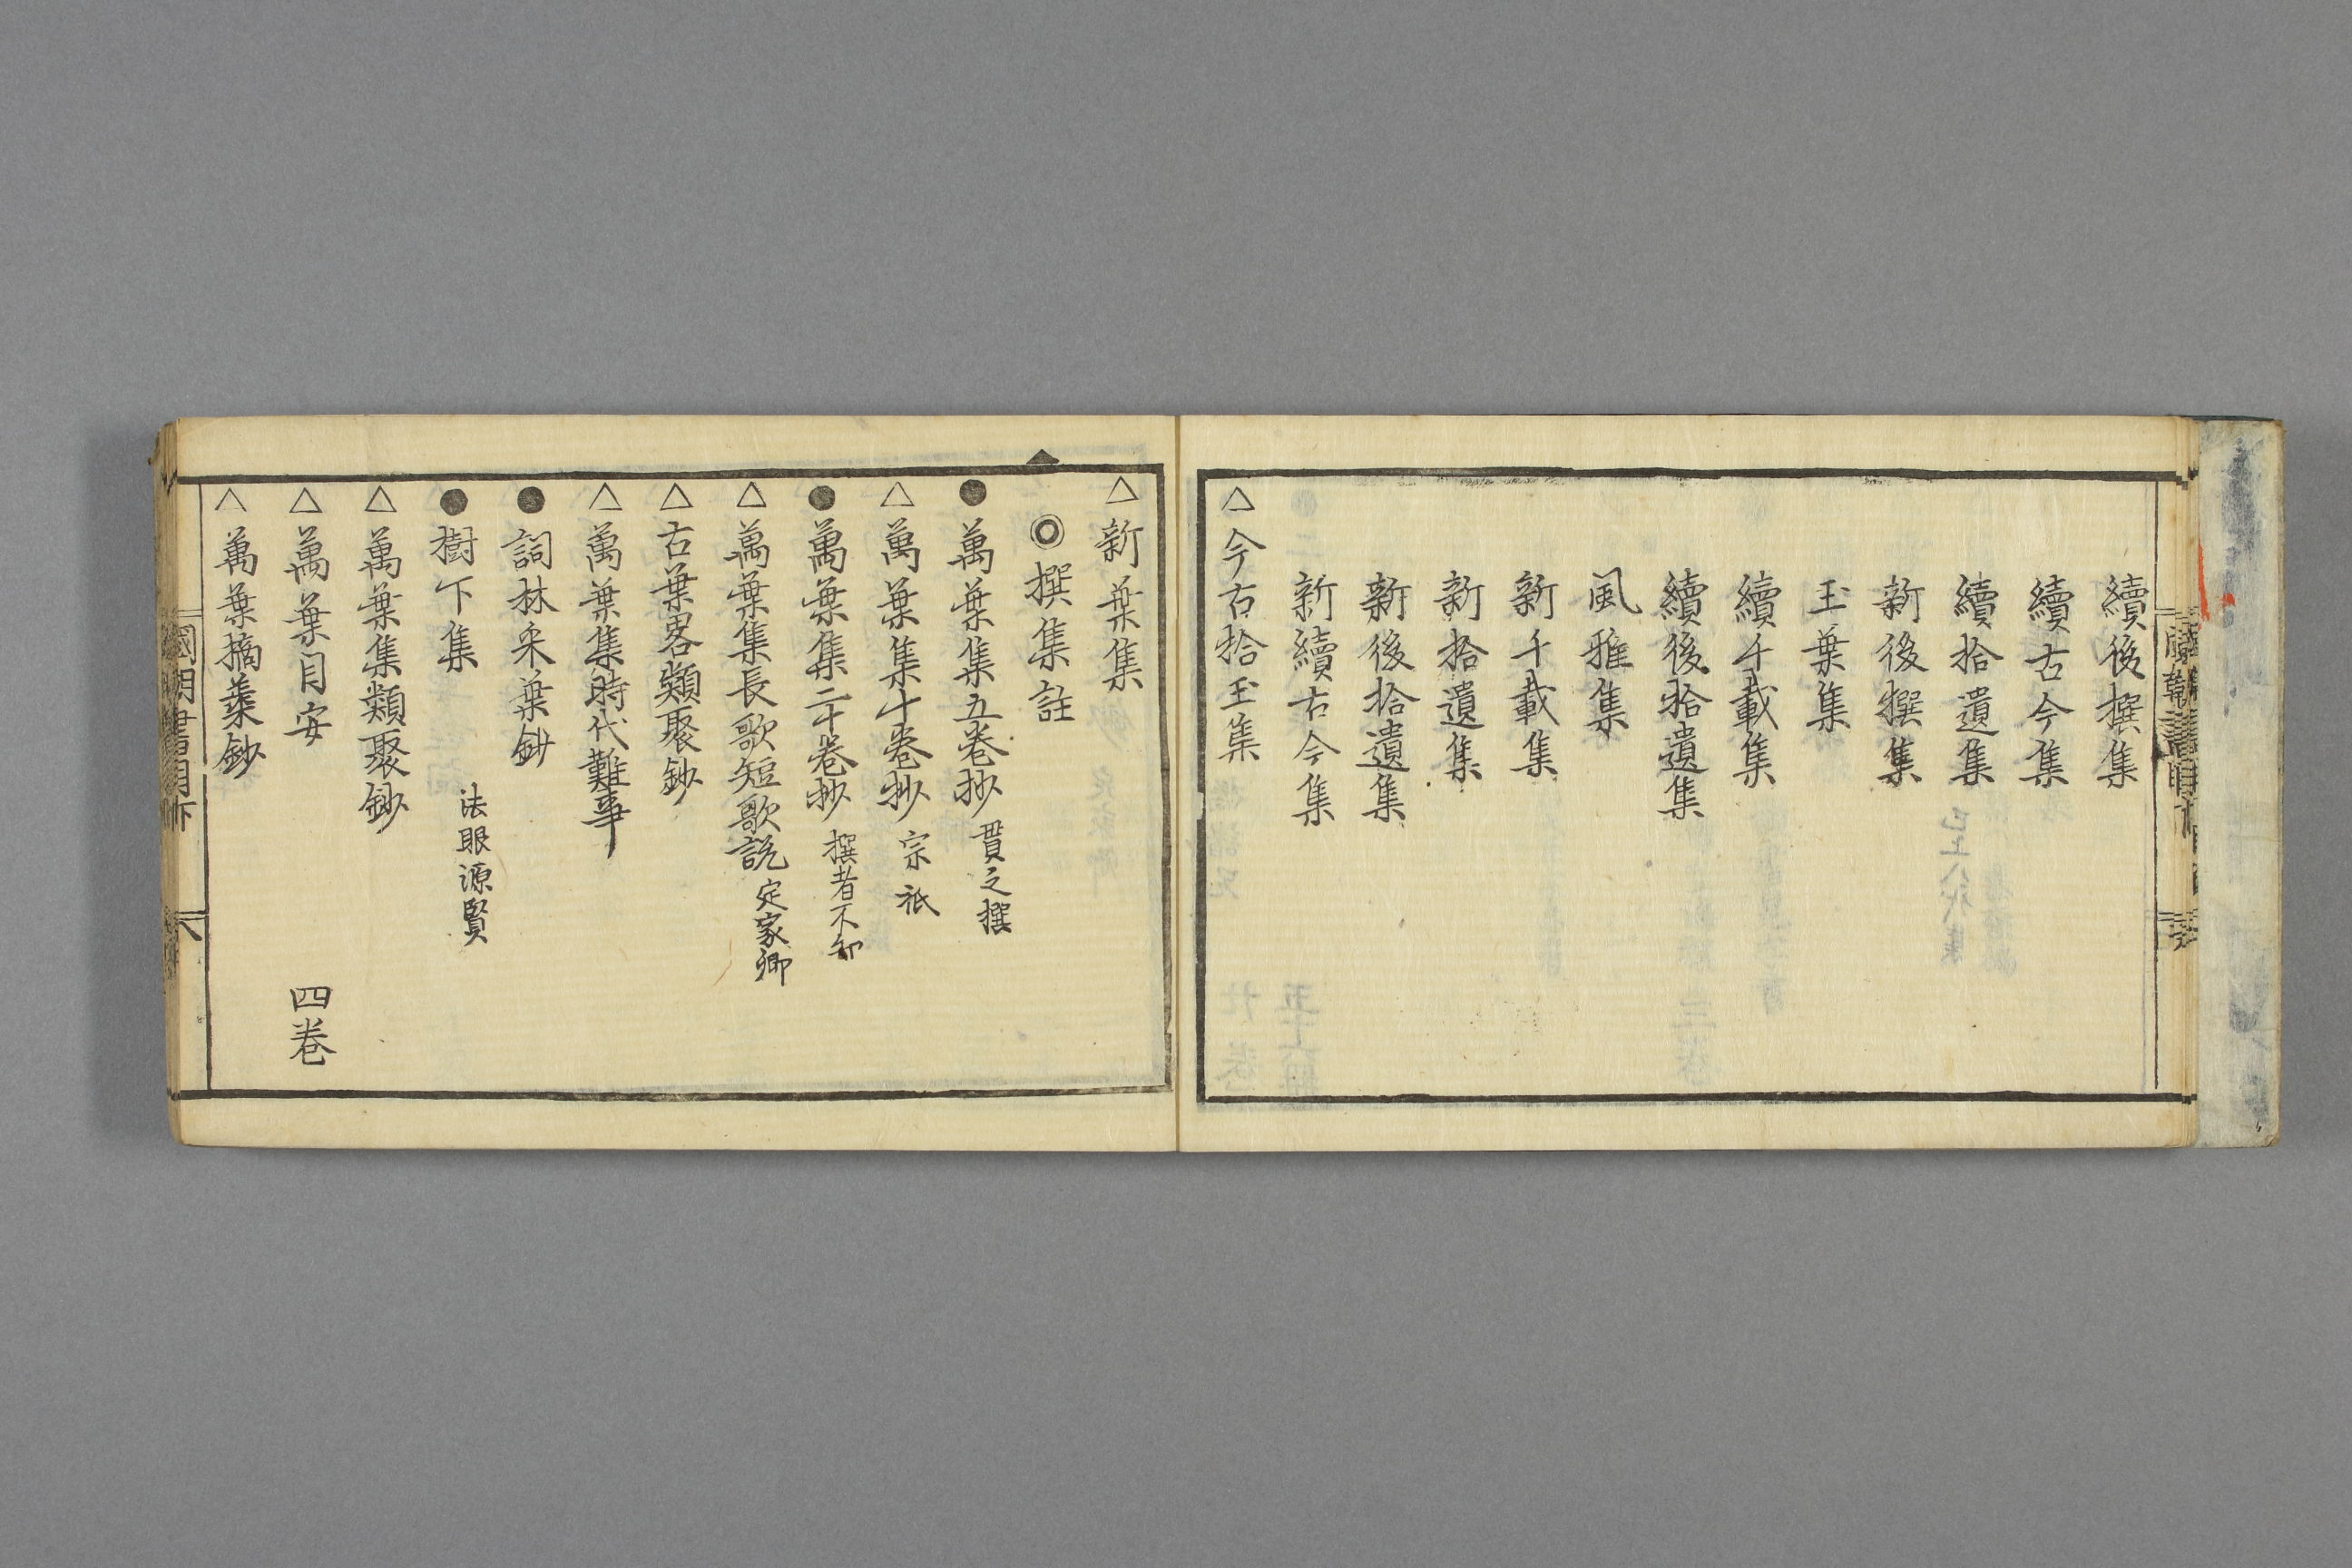 續後撰集
續古今集
續拾遺集
新後撰集
玉葉集
續千載集
續後拾遺集
風雅集
新千載集
新拾遺集
新後拾遺集
新續古今集
△今古拾玉集
△新葉集
◎撰集註
●萬葉集五卷抄 貫之撰
△萬葉集十卷抄 宗祇
●萬葉集二十卷抄 撰者不知
△萬葉集長歌短歌說 定家卿
△古葉畧類聚鈔
△萬葉集時代難事
●詞林采葉鈔
●樹下集 法眼源賢
△萬葉集類聚鈔
△萬葉目安 四卷
△萬葉摘葉鈔